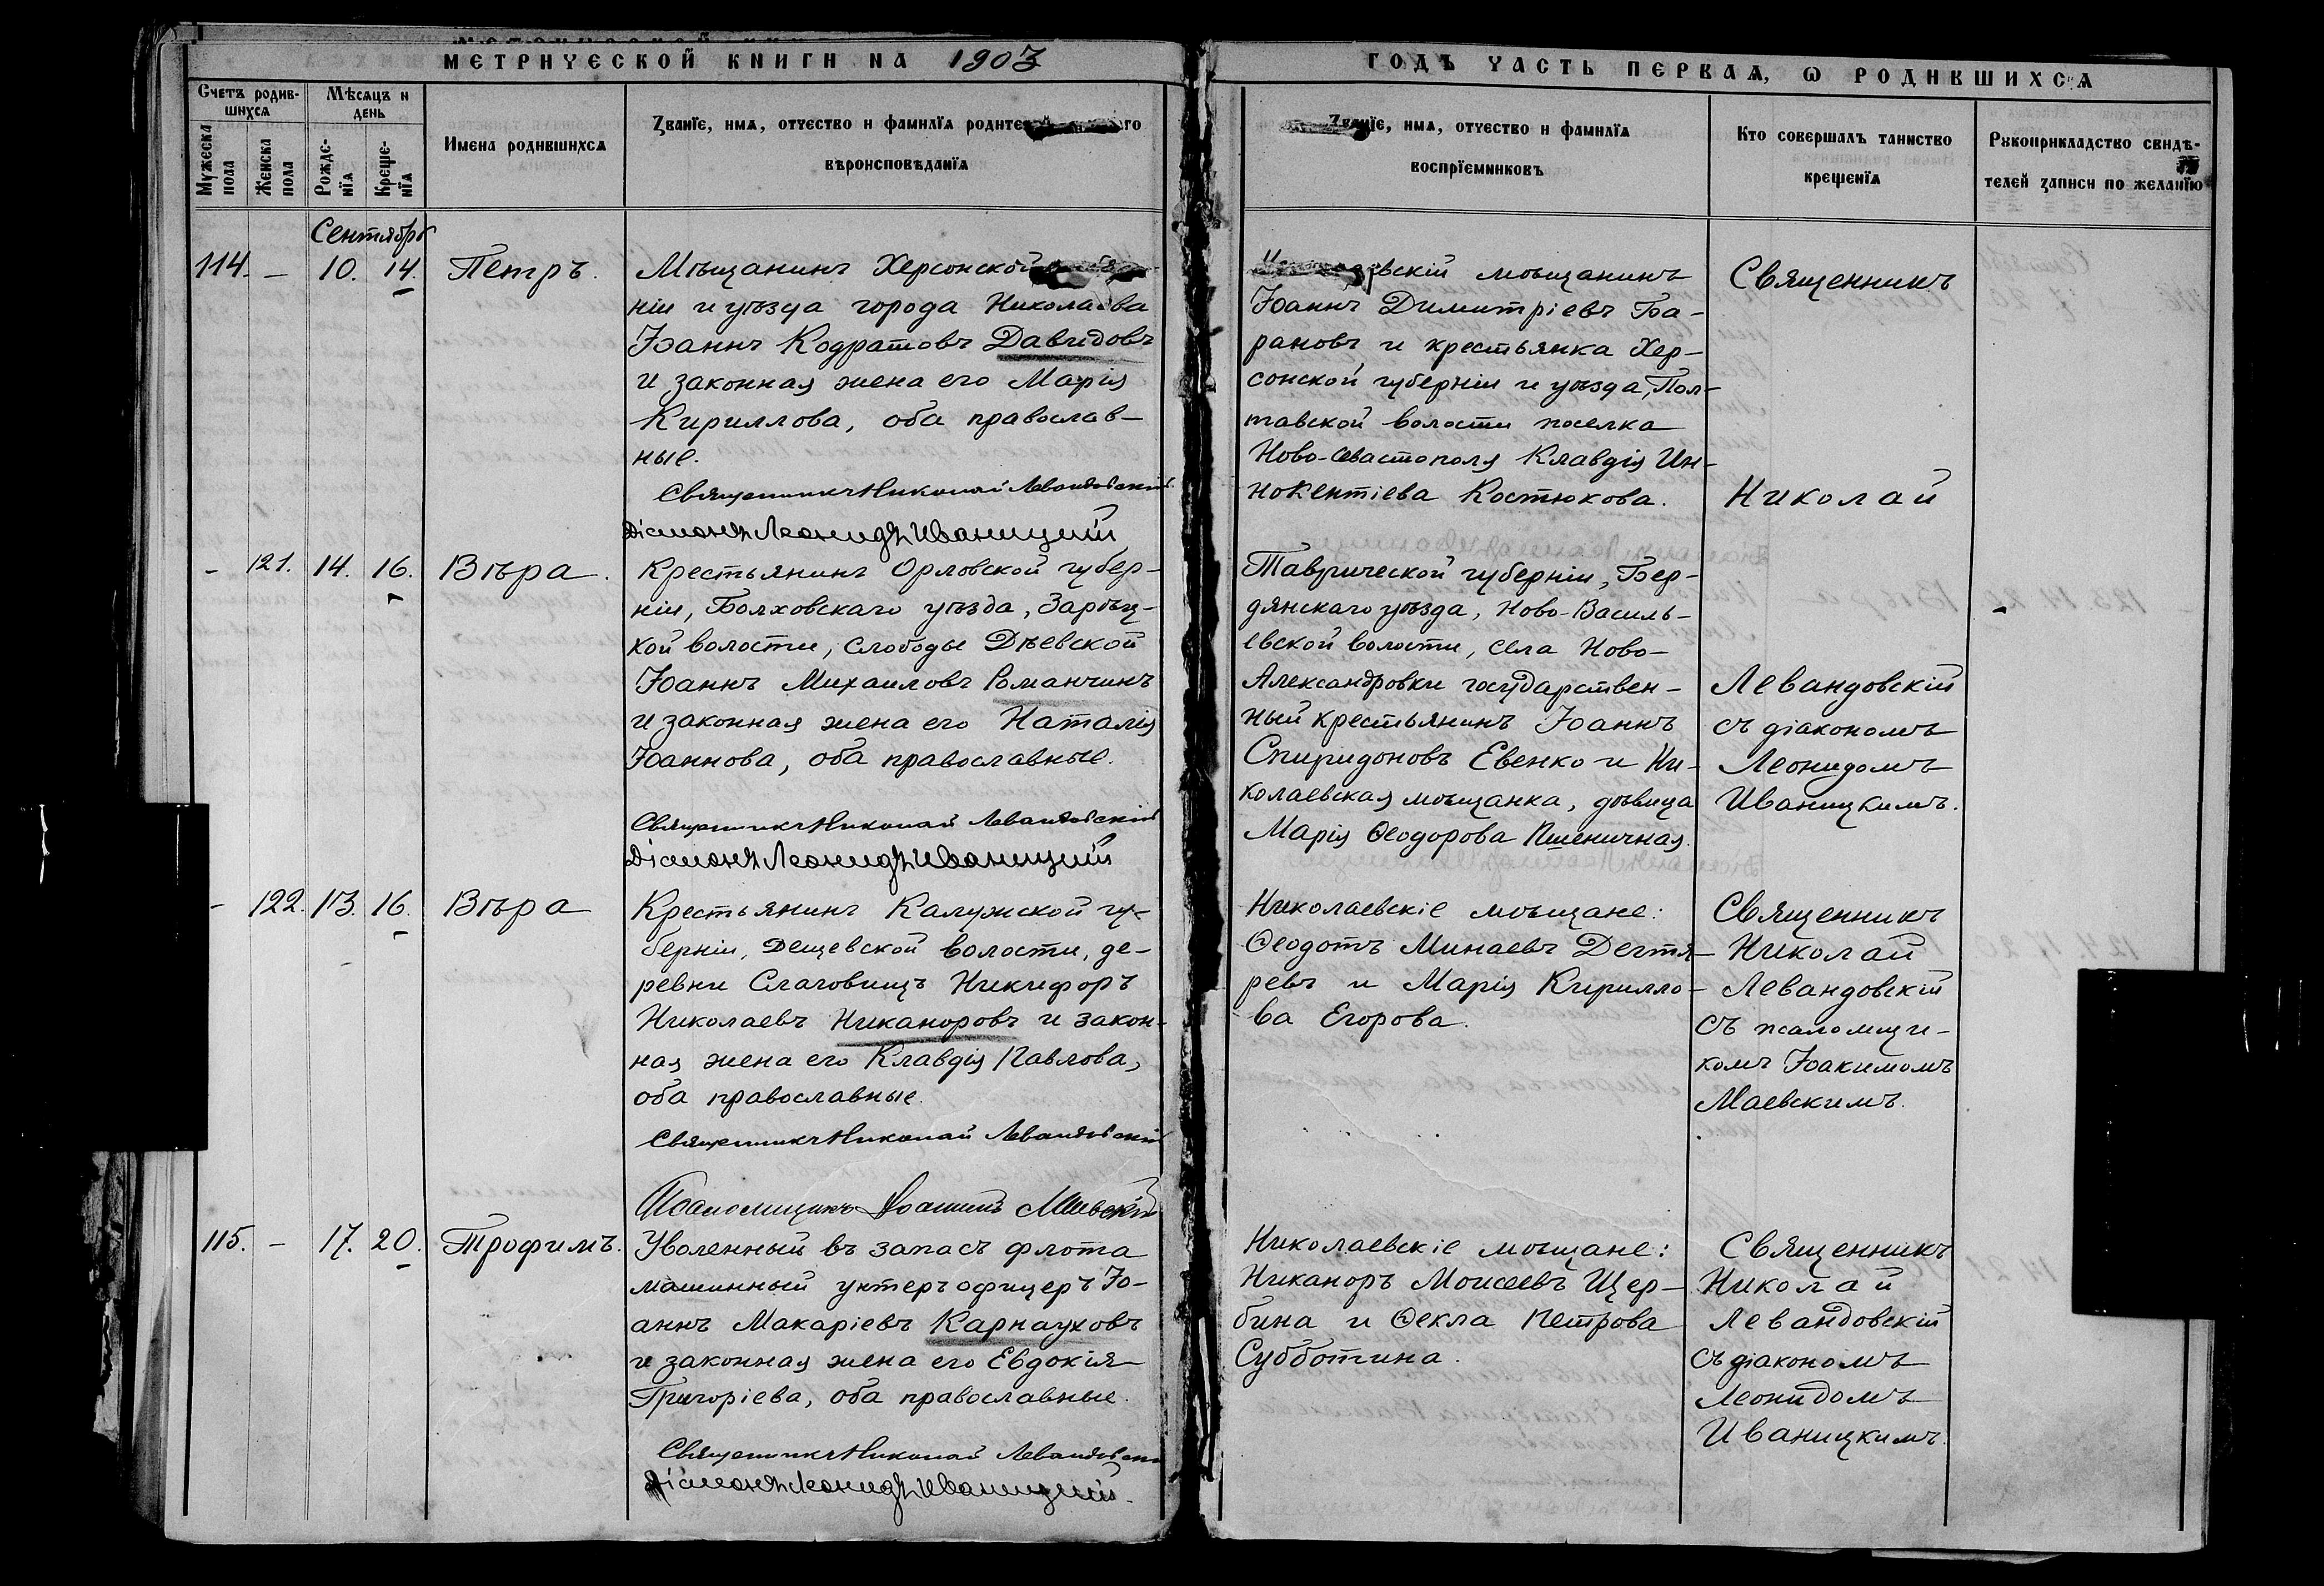 МЕТРИЧЕСКОЙ КНИГИ НА 1903
ГОДЪ ЧАСТЬ ПЕРВАЯ, Ѡ РОДИВШИХСЯ
Счетъ родив-
шихся
Мѣсяцъ и
день
Мужеска
пола
Женска
пола
Рожде-
нїя
Креще-
нїя
Имена родившихся
Званїе, имя, отчество и фамилїя
вѣроисповѣданїя
Званїе, имя, отчество и фамилїя
воспрїемниковъ
Кто совершалъ таинство
крещенїя
Рукоприкладство свидѣ-
телей записи по желанїю
Сентябрь
114. – 10. 14. Петръ.
Мѣщанинъ Херсонской
ніи и уѣзда города Николаева
Іоаннъ Кодратовъ Давидовъ
и законная жена его Марія
Кириллова, оба православ-
ные.
Священникъ Николай Левандовскій
Діаконъ Леонидъ Иваницкій
мѣщанинъ
Іоаннъ Димитріевъ Ба-
рановъ и крестьянка Хер-
сонской губерніи и уѣзда, Пол-
тавской волости поселка
Ново-Севастополя Клавдія Ин-
нокентіева Костюкова.
Священникъ
Николай
– 121. 14. 16. Вѣра.
Крестьянинъ Орловской губер-
ніи, Болховскаго уѣзда, Зарѣц-
кой волости, слободы Дѣевской
Іоаннъ Михаиловъ Романчинъ
и законная жена его Наталія
Іоаннова, оба православные.
Священникъ Николай Левандовскій
Діаконъ Леонидъ Иваницкій
Таврической губерніи, Бер-
дянскаго уѣзда, Ново-Василь-
евской волости, села Ново-
Александровки государствен-
ный крестьянинъ Іоаннъ
Спиридоновъ Евенко и Ни-
колаевская мѣщанка, дѣвица
Марія Ѳеодорова Пшеничная.
Левандовскій
съ діакономъ
Леонидомъ
Иваницкимъ.
– 122. 13. 16. Вѣра
Крестьянинъ Калужской гу-
берніи, Дещевской волости, де-
ревни Слаговищъ Никифоръ
Николаевъ Никаноровъ и закон-
ная жена его Клавдія Павлова,
оба православные.
Священникъ Николай Левандовскій
Псаломщикъ Іоакимъ Маевскій
Николаевскіе мѣщане:
Ѳеодотъ Минаевъ Дегтя-
ревъ и Марія Кирилло-
ва Егорова.
Священникъ
Николай
Левандовскій
съ псаломщи-
комъ Іоакимомъ
Маевскимъ.
115. – 17. 20. Трофимъ.
Уволенный въ запасъ флота
машинный унтеръ офицеръ Іо-
аннъ Макаріевъ Карнауховъ
и законная жена его Евдокія
Григоріева, оба православные.
Священникъ Николай Левандовскій
Діаконъ Леонидъ Иваницкій.
Николаевскіе мѣщане:
Никаноръ Моисеевъ Щер-
бина и Ѳекла Петрова
Субботина.
Священникъ
Николай
Левандовскій
съ діакономъ
Леонидомъ
Иваницкимъ.